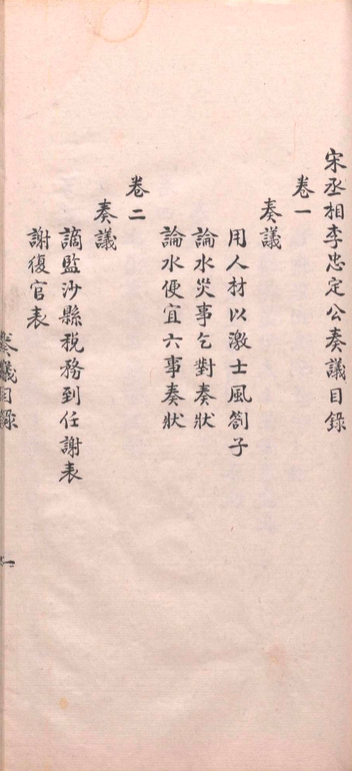 宋丞相李忠定公奏議目錄
卷一
奏議
用人材以激士風劄子
論水災事乞對奏狀
論水便宜六事奏狀
卷二
奏議
謫監沙縣稅務到任謝表
謝復官表
奏議目錄
一